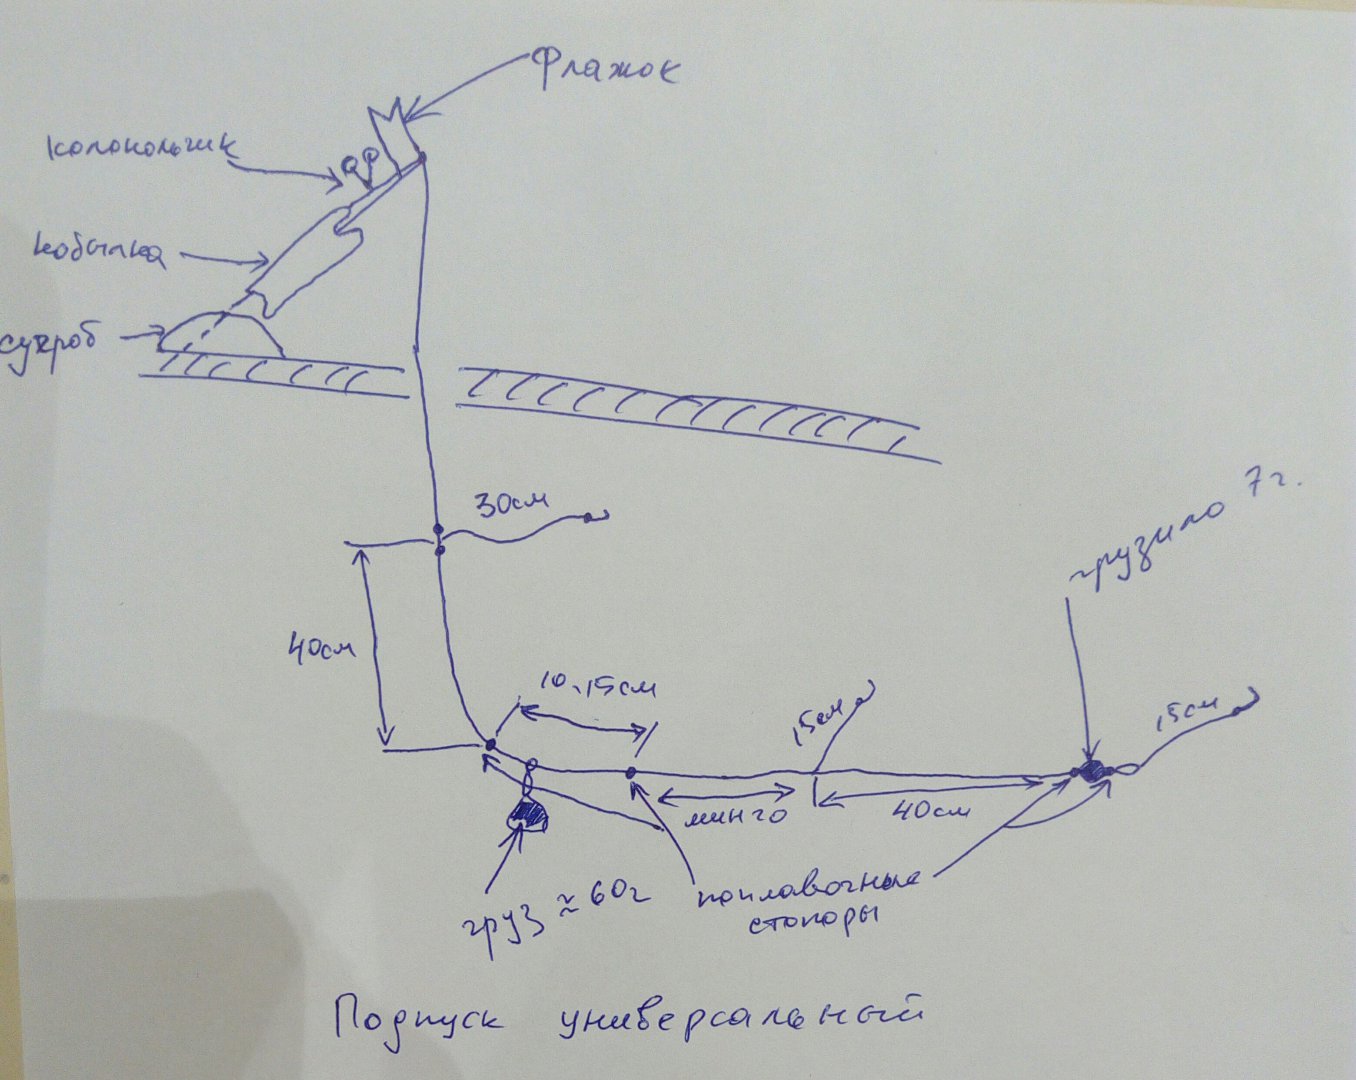 Флажок
колокольчик
кобылка
сугроб
30см
грузило 7г.
40см
10-15см
15см
15см
мин 20
40см
груз ≈ 60г
поплавочные
стопоры
Подпуск универсальный